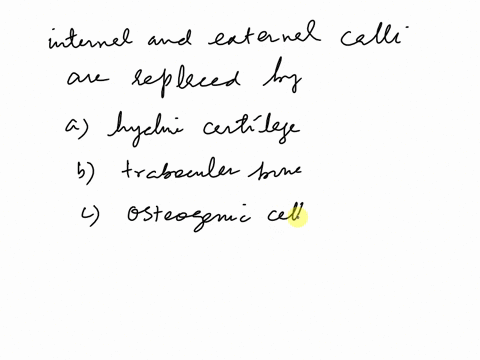 internal and external calli
are replaced by
a) hyclini certilege
b) trabecular bone
c) osteogenic cell